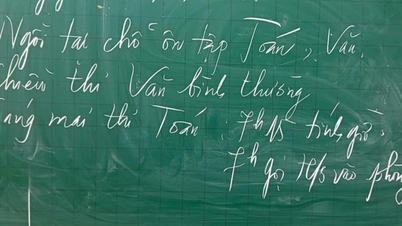 Ngồi tại chỗ ôn tập Toán, Văn.
hiều thi Văn bình thường
áng mai thi Toán: 7h15 tính giờ.
7h gọi H/s vào phòng